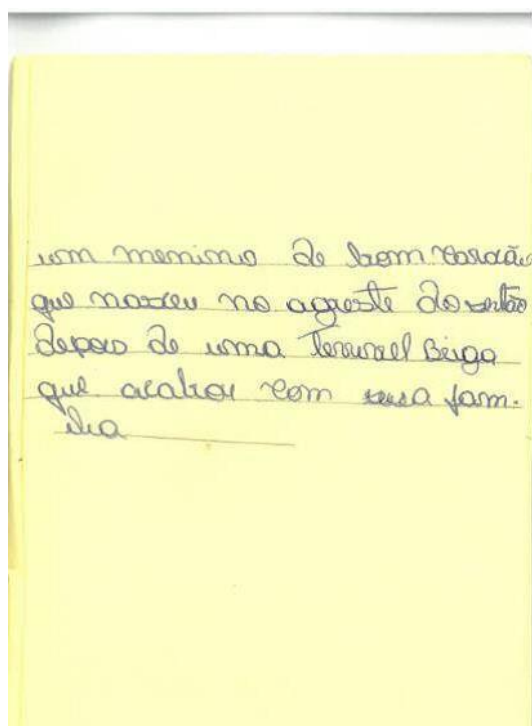 um menino de bom coração
que nasceu no agreste do sertão
depois de uma terrivel Briga
que acabou com sua fam-
ilia